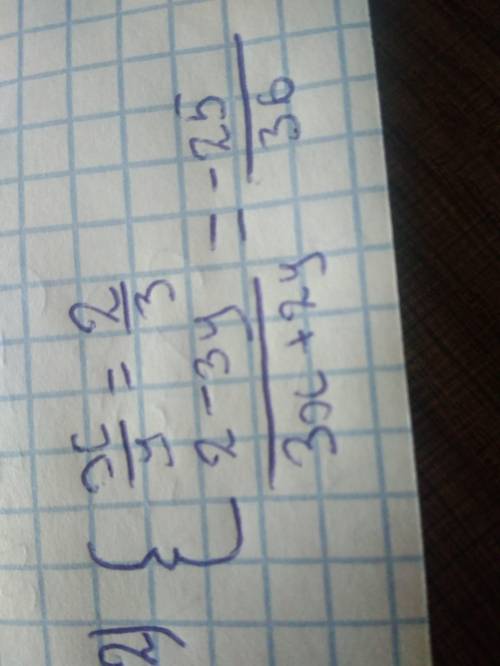 2) { x/y = 2/3
(2 - 3y)/(3x + 2y) = -25/36